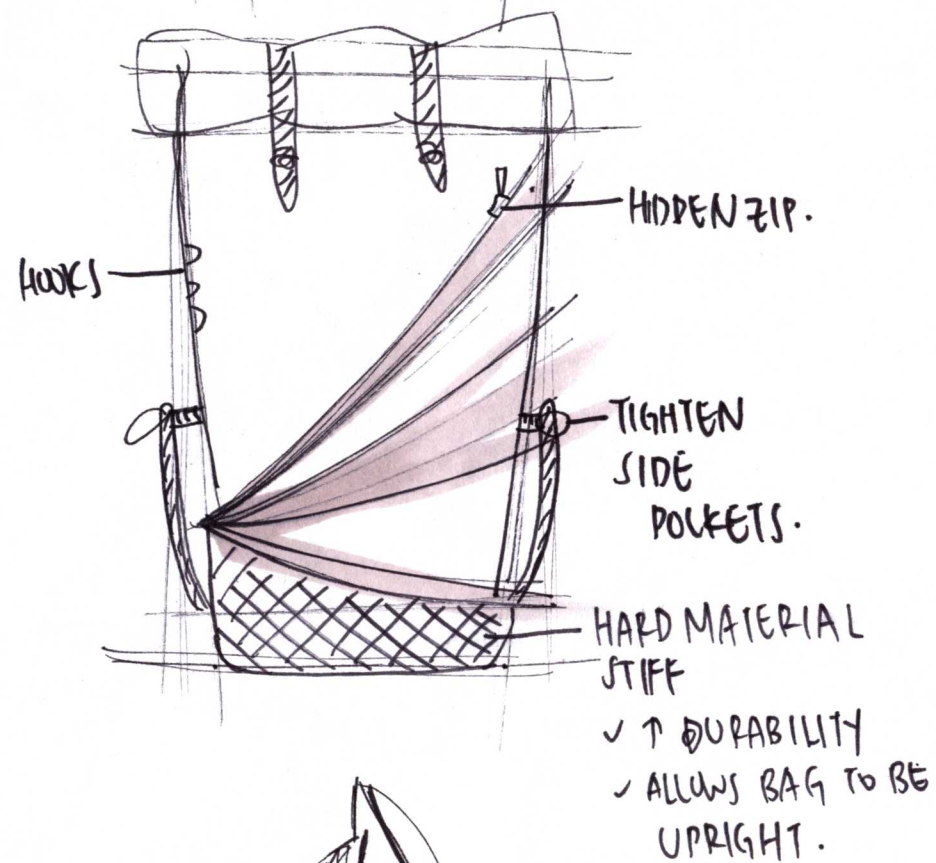 HIDDEN ZIP.
HOOKS
TIGHTEN
SIDE
POCKETS.
HARD MATERIAL
STIFF
✓ ↑ DURABILITY
✓ ALLOWS BAG TO BE
UPRIGHT.